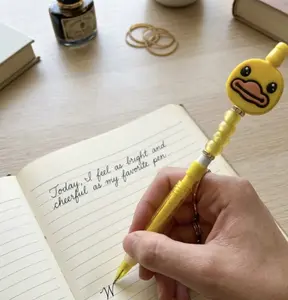 Today, I feel as bright and
cheerful as my favorite pen.
W